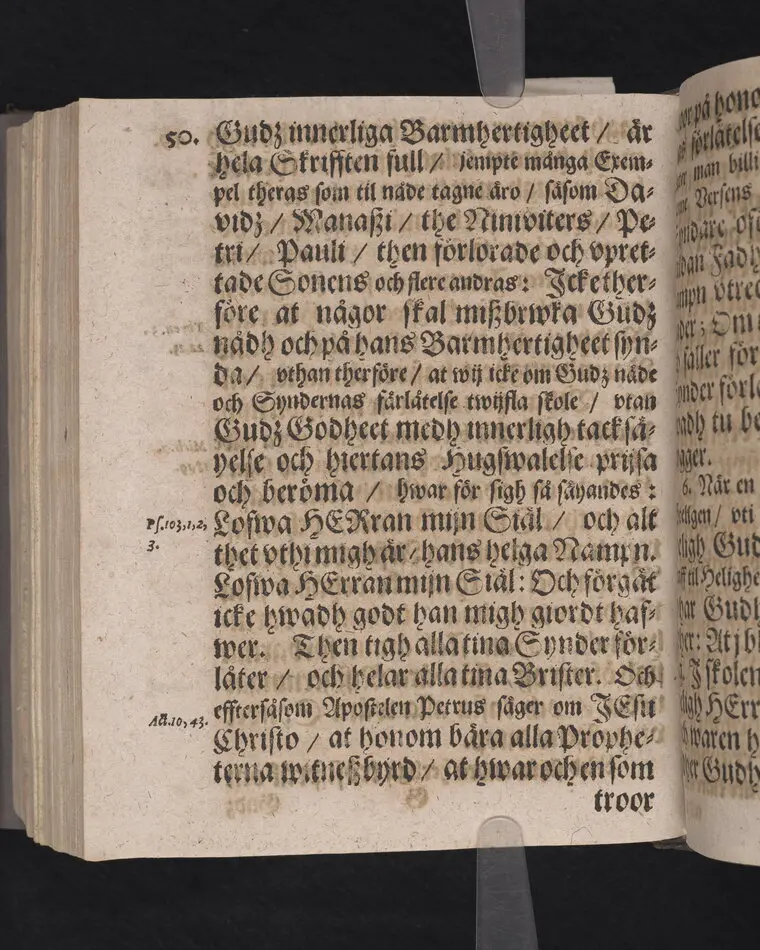 50. Gudz innerliga Barmhertigheet / är
hela Skrifften full / jempte många Exem-
pel theras som til nåde tagne äro / såsom Da-
vidz / Manaßi / the Niniviters / Pe-
tri / Pauli / then förlorade och vpret-
tade Sonens och flere andras: Icke ther-
före at någor skal mißbrwka Gudz
nådh och på hans Barmhertigheet syn-
da / vthan therföre / at wij icke om Gudz nåde
och Syndernas förlåtelse twijfla skole / vtan
Gudz Godheet medh innerligh tacksä-
yelse och hiertans Hugswalelse prijsa
och beröma / hwar för sigh så säyandes:
Ps.103,1,2, Lofwa HERran mijn Siäl / och alt
3. thet vthi migh är / hans helga Nampn.
Lofwa HErran mijn Siäl: Och förgät
icke hwadh godt han migh giordt haf-
wer. Then tigh alla tina Synder för-
låter / och helar alla tina Brister. Och
effter såsom Apostelen Petrus säger om JEsu
Act.10,43. Christo / at honom bära alla Prophe-
terna witneßbyrd / at hwar och en som
troor
på hono
förlåtelse
man billi
Versens
6. När en
/ vti
Gud
Helighe
Gudh
Iskolen
HErr
waren h
Gudh